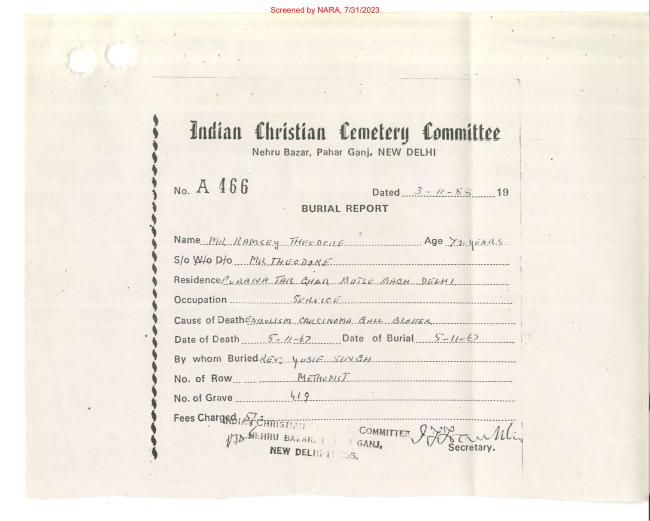 Screened by NARA, 7/31/2023
Indian Christian Cemetery Committee
Nehru Bazar, Pahar Ganj, NEW DELHI
No. A 466 Dated 3-11-85 19
BURIAL REPORT
Name MR RAMSEY THEODORE Age 72 YEARS
S/o W/o D/o MR THEODORE
Residence PURANA TAR GHAR DELHI
Occupation SERVICE
Cause of Death EMBOLISM CARCINOMA GALL BLADDER
Date of Death 5-11-67 Date of Burial 5-11-67
By whom Buried REV. YUSIF SINGH
No. of Row METHODIST
No. of Grave 419
Fees Charged
INDIAN CHRISTIAN COMMITTEE
NEHRU BAZAR, GANJ,
NEW DELHI
Secretary.